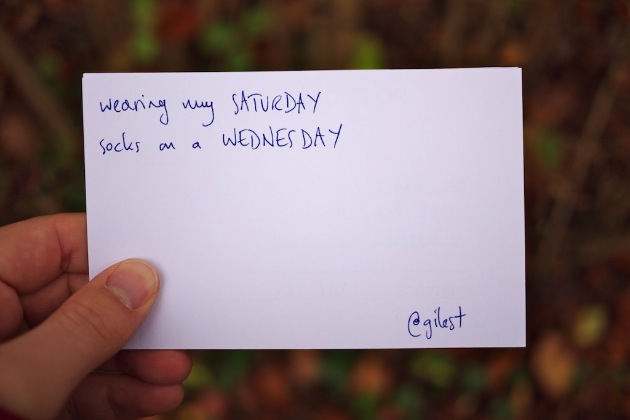 wearing my SATURDAY
socks on a WEDNESDAY
@gilest